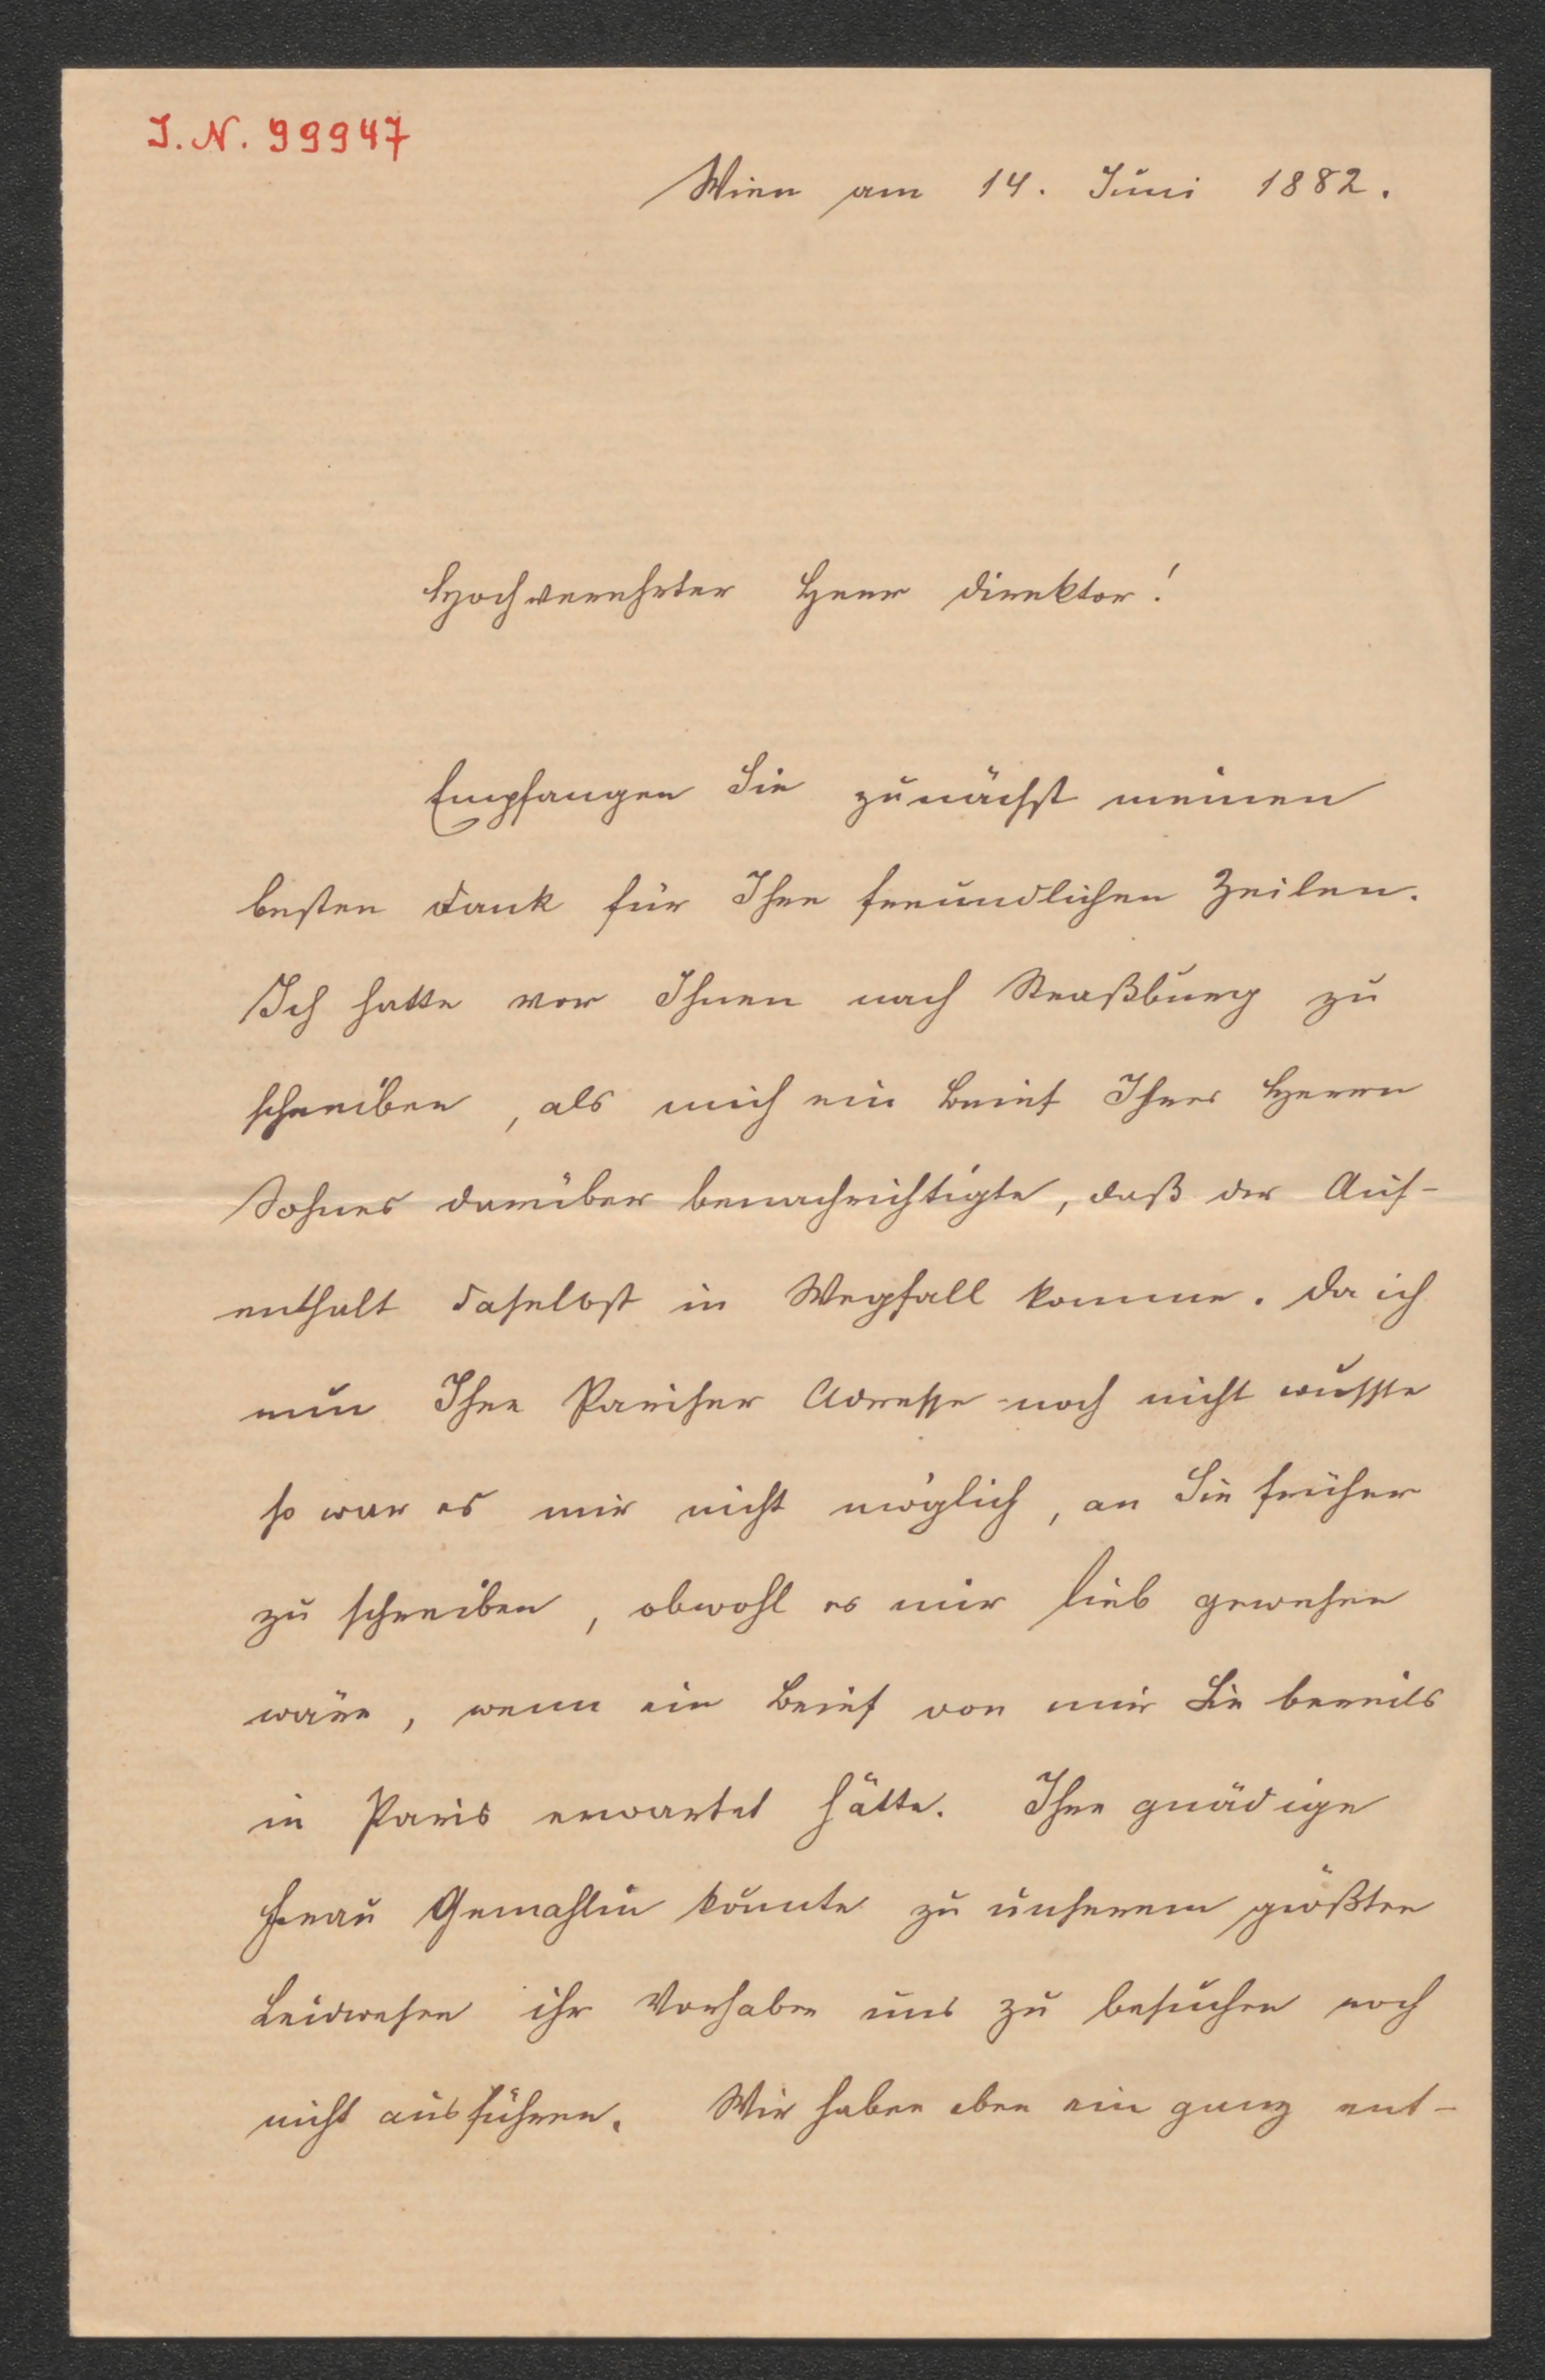 I. N. 99947
Wien am 14. Juni 1882.
Hochverehrter Herr Direktor!
Empfangen Sie zunächst meinen
besten Dank für Ihre freundlichen Zeilen.
Ich hatte vor Ihnen nach Straßburg zu
schreiben, als mich ein Brief Ihres Herrn
Sohnes darüber benachrichtigte, daß der Auf-
enthalt daselbst in Wegfall komme. Da ich
nun Ihre Pariser Adresse noch nicht wusste
so war es mir nicht möglich, an Sie früher
zu schreiben, obwohl es mir lieb gewesen
wäre, wenn ein Brief von mir Sie bereits
in Paris erwartet hätte. Ihre gnädige
Frau Gemahlin konnte zu unserem größten
Leidwesen ihr Vorhaben uns zu besuchen noch
nicht ausführen. Wir haben eben ein ganz ent-